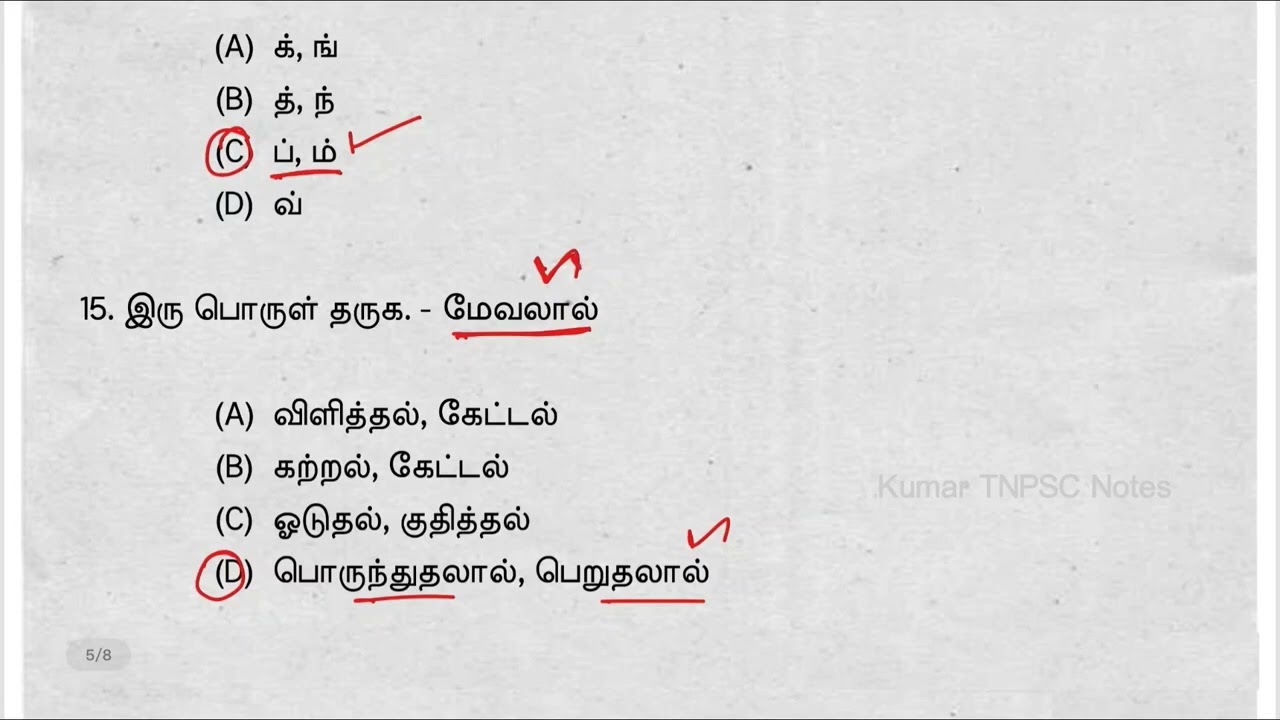 (A) க், ங்
(B) த், ந்
(C) ப், ம்
(D) வ்
15. இரு பொருள் தருக. - மேவலால்
(A) விளித்தல், கேட்டல்
(B) கற்றல், கேட்டல்
Kumar TNPSC Notes
(C) ஓடுதல், குதித்தல்
(D) பொருந்துதலால், பெறுதலால்
5/8